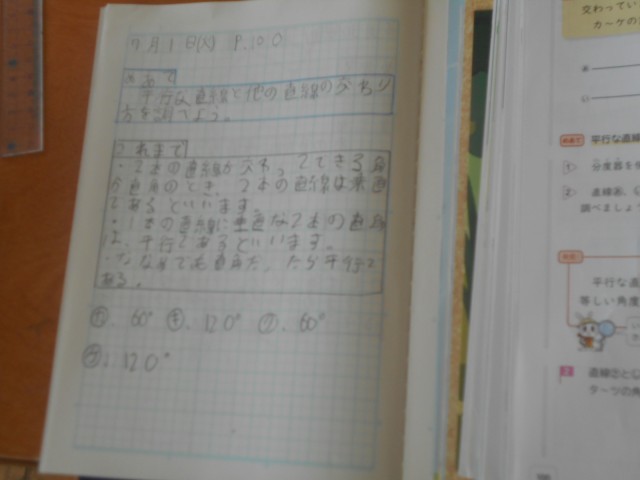 7月1日(火) P.100
めあて
平行な直線と他の直線の交わり
方を調べよう。
これまで
・2本の直線が交わってできる角
が直角のとき、2本の直線は垂直
であるといいます。
・1本の直線に垂直な2本の直線
は、平行であるといいます。
・ななめでも直角だったら平行で
ある。
60° 120° 60°
120°
交わってい
カーケの
あ
い
平行な直線
1 分度器を
2 直線
調べましょ
平行な直
等しい角度
2 直線
ターツの角